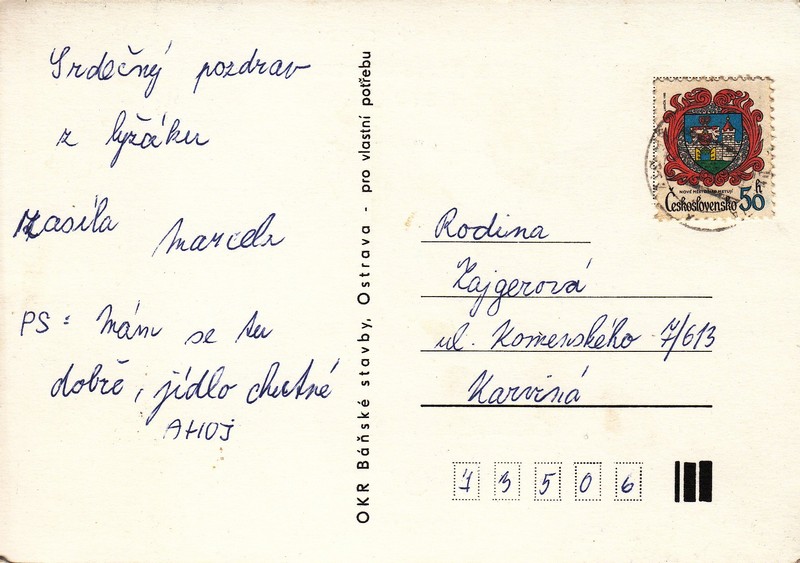 Srdečný pozdrav
z lyžáku
Zasílá Marcela
PS: Mám se tu
dobře, jídlo chutné
AHOJ
OKR Báňské stavby, Ostrava - pro vlastní potřebu
NOVÉ MĚSTO NAD METUJÍ
Československo 50 h
Rodina
Zajgerová
ul. Komenského 7/613
Karviná
73506